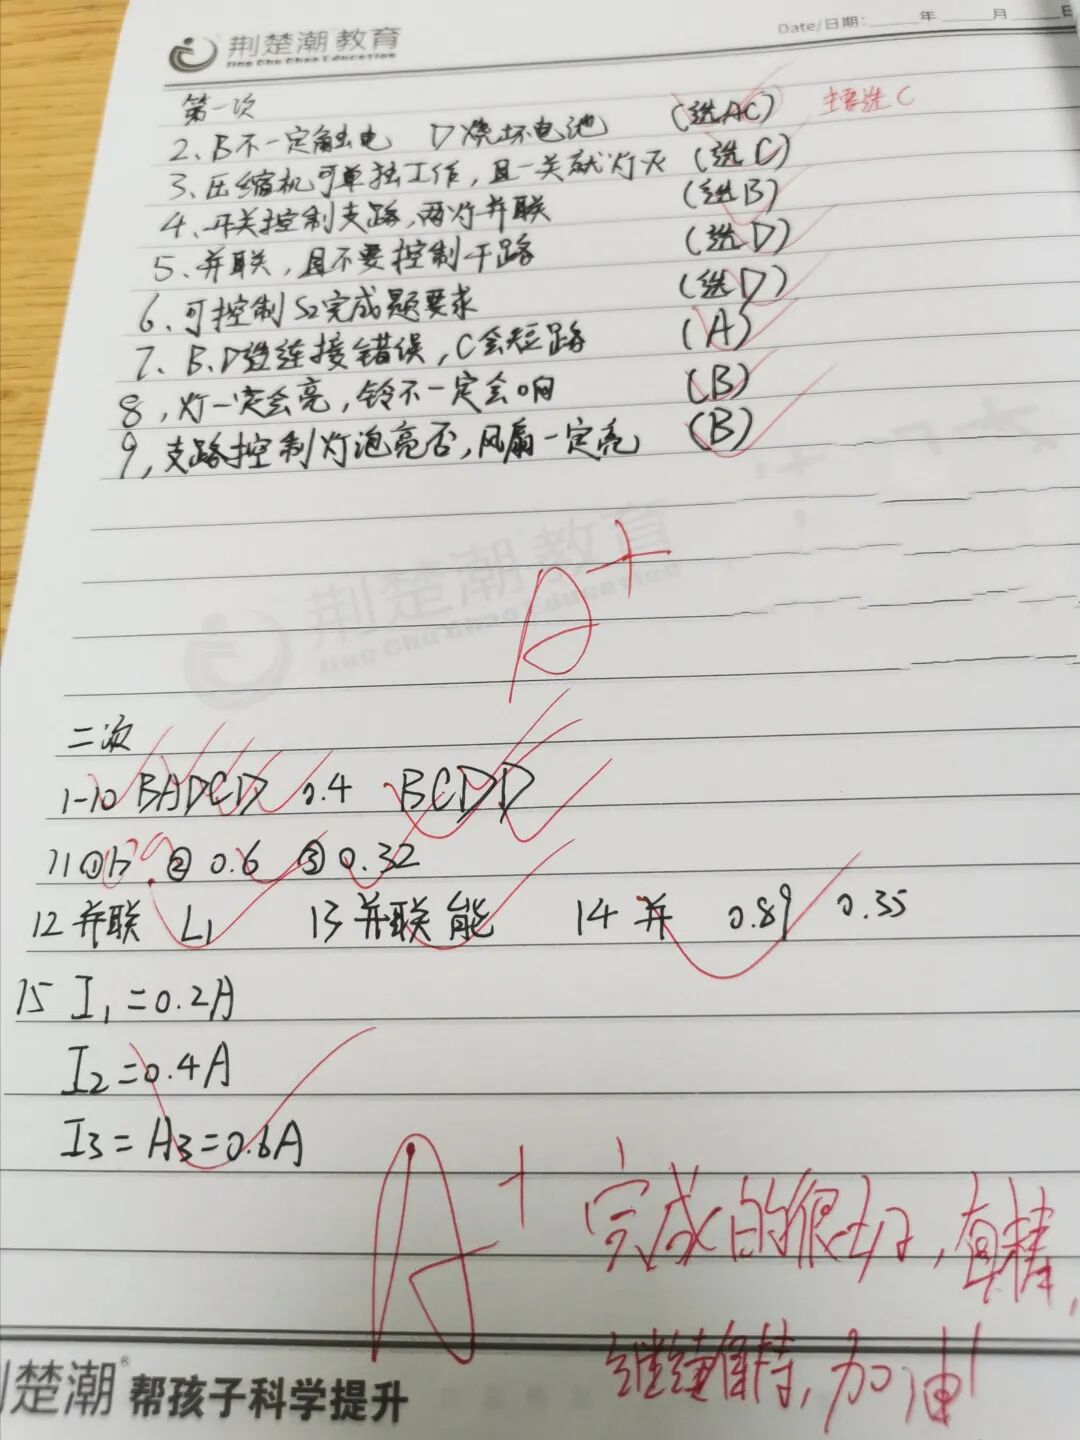 荆楚潮教育 Date/日期: 年 月 日
Jing Chu Chao Education
第一次
2、B不一定触电 D烧坏电池 (选AC) 选C
3、压缩机可单独工作，且一关就灯灭 (选C)
4、开关控制支路，两灯并联 (选B)
5、并联，且不要控制干路 (选D)
6、可控制S2完成题要求 (选D)
7、B、D选连接错误，C会短路 (A)
8，灯一定会亮，铃不一定会响 (B)
9，支路控制灯泡亮否，风扇一定亮 (B)
荆楚潮教育
Jing Chu Chao Education
A+
二次
1-10 BADCD 0.4 BCDD
11 ① ② 0.6 ③ 0.32
12 并联 L1 13 并联 能 14 并 0.89 0.35
15 I1=0.2A
I2=0.4A
I3=A3=0.6A
A+ 完成的很好，真棒，
继续保持，加油！
荆楚潮® 帮孩子科学提升